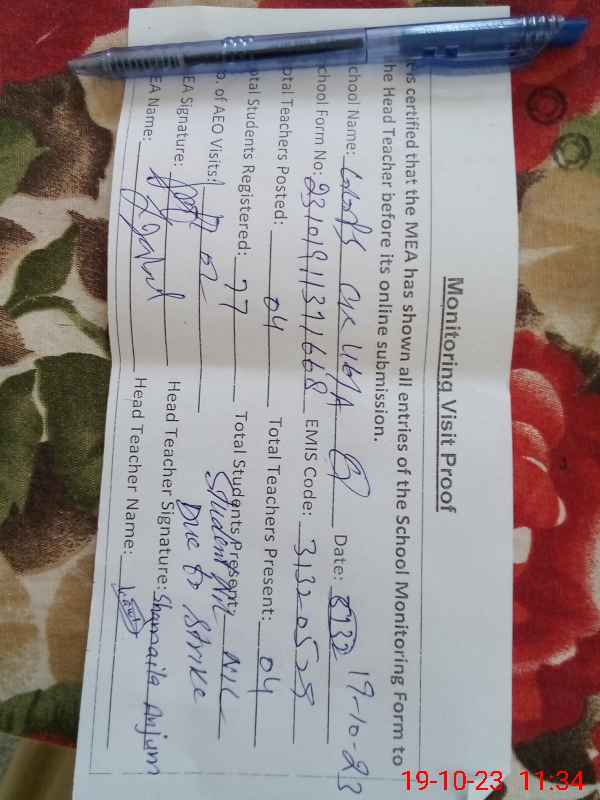 Monitoring Visit Proof
is certified that the MEA has shown all entries of the School Monitoring Form to
he Head Teacher before its online submission.
chool Name: Date: 19-10-23
chool Form No: EMIS Code:
otal Teachers Posted: 04 Total Teachers Present: 04
otal Students Registered: 77 Total Students Present: NIL
Student NIL
Due to strike
o. of AEO Visits: 02
EA Signature: Head Teacher Signature: Shamaila Anjum
EA Name: Head Teacher Name:
19-10-23 11:34